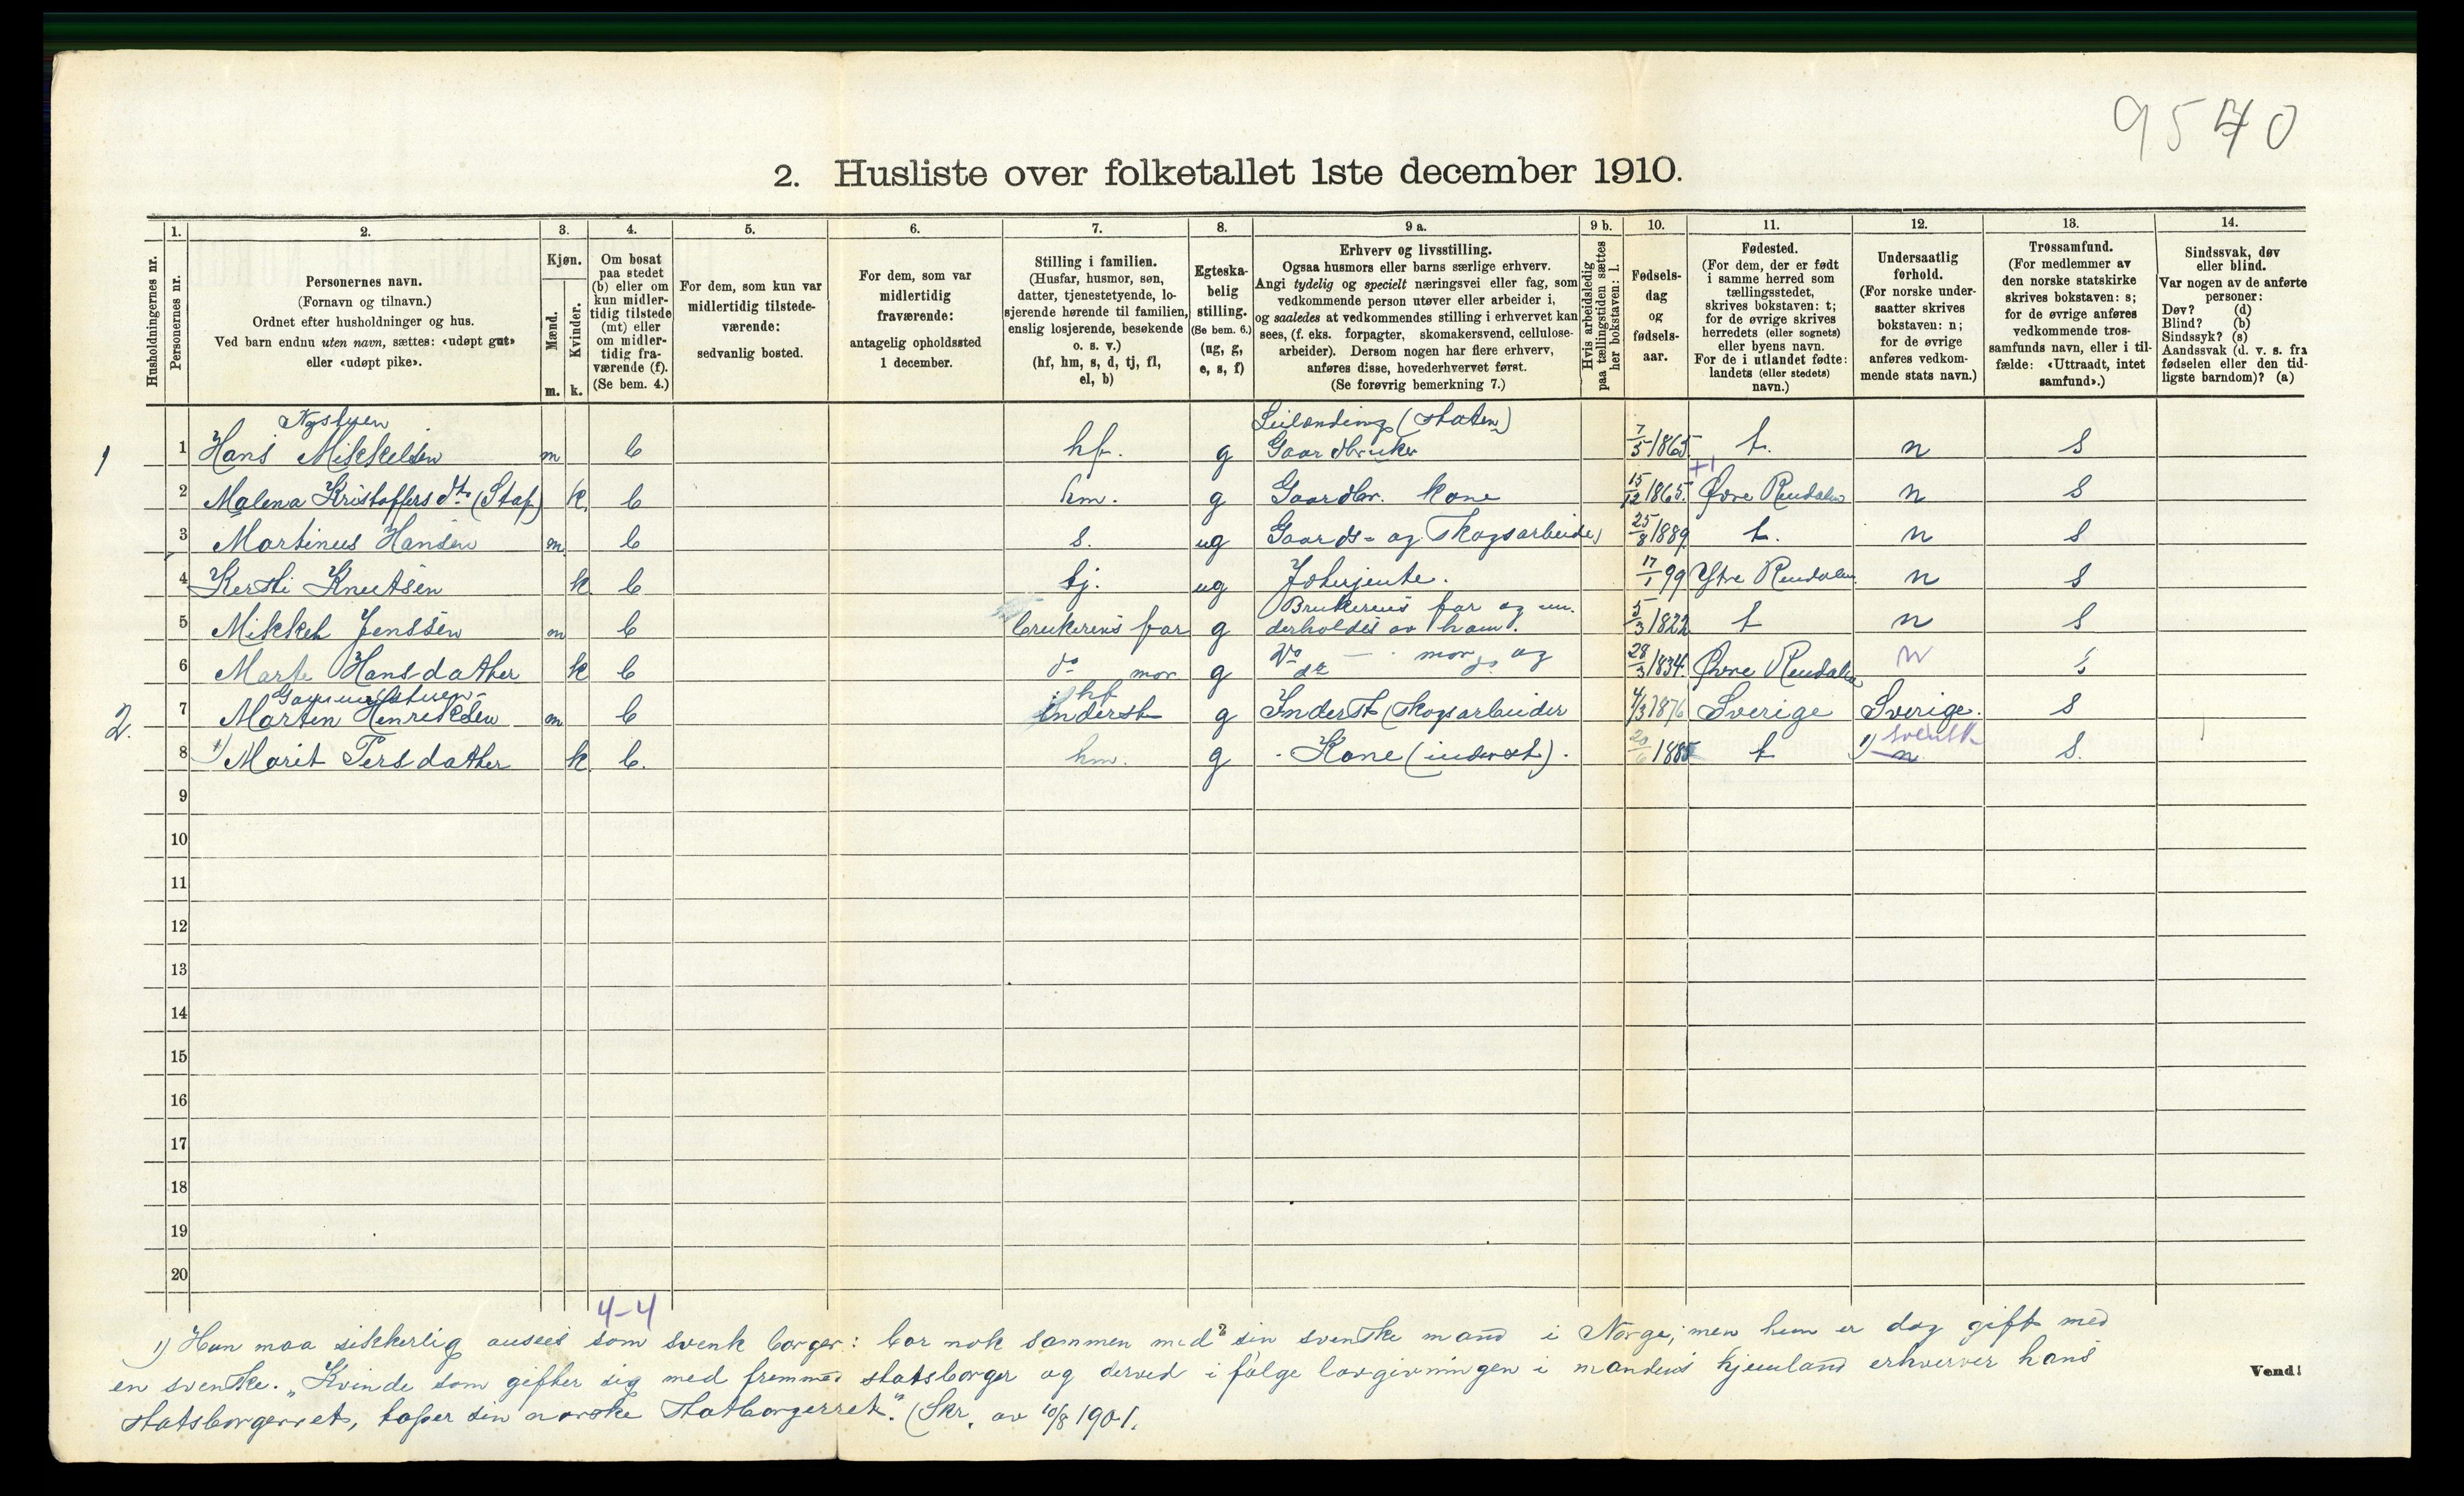 9540
2. Husliste over folketallet 1ste december 1910.
Husholdningernes nr.
1.
Personernes nr.
2.
Personernes navn.
(Fornavn og tilnavn.)
Ordnet efter husholdninger og hus.
Ved barn endnu uten navn, sættes: «udøpt gut»
eller «udøpt pike».
3.
Kjøn.
Mænd.
Kvinder.
m. k.
4.
Om bosat
paa stedet
(b) eller om
kun midler-
tidig tilstede
(mt) eller
om midler-
tidig fra-
værende (f).
(Se bem. 4.)
5.
For dem, som kun var
midlertidig tilstede-
værende:
sedvanlig bosted.
6.
For dem, som var
midlertidig
fraværende:
antagelig opholdssted
1 december.
7.
Stilling i familien.
(Husfar, husmor, søn,
datter, tjenestetyende, lo-
sjerende hørende til familien,
enslig losjerende, besøkende
o. s. v.)
(hf, hm, s, d, tj, fl,
el, b)
8.
Egteska-
belig
stilling.
(Se bem. 6.)
(ug, g,
e, s, f)
9 a.
Erhverv og livsstilling.
Ogsaa husmors eller barns særlige erhverv.
Angi tydelig og specielt næringsvei eller fag, som
vedkommende person utøver eller arbeider i,
og saaledes at vedkommendes stilling i erhvervet kan
sees, (f. eks. forpagter, skomakersvend, cellulose-
arbeider). Dersom nogen har flere erhverv,
anføres disse, hovederhvervet først.
(Se forøvrig bemerkning 7.)
9 b.
Hvis arbeidsledig
paa tællingstiden sættes
her bokstaven: l.
10.
Fødsels-
dag
og
fødsels-
aar.
11.
Fødested.
(For dem, der er født
i samme herred som
tællingsstedet,
skrives bokstaven: t;
for de øvrige skrives
herredets (eller sognets)
eller byens navn.
For de i utlandet fødte:
landets (eller stedets)
navn.)
12.
Undersaatlig
forhold.
(For norske under-
saatter skrives
bokstaven: n;
for de øvrige
anføres vedkom-
mende stats navn.)
13.
Trossamfund.
(For medlemmer av
den norske statskirke
skrives bokstaven: s;
for de øvrige anføres
vedkommende tros-
samfunds navn, eller i til-
fælde: «Uttraadt, intet
samfund».)
14.
Sindssvak, døv
eller blind.
Var nogen av de anførte
personer:
Døv? (d)
Blind? (b)
Sindssyk? (s)
Aandssvak (d. v. s. fra
fødselen eller den tid-
ligste barndom)? (a)
Nystuen Leilænding (staten)
1 1 Hans Mikkelsen m b hf. g Gaardbruker 7/5 1865 t. n s
+1
2 Malena Kristoffersdtr (Staf) k. b hm. g Gaardbr. kone 15/12 1865. Øvre Rendalen n s
3 Martinus Hansen m b s. ug Gaards- og skogsarbeider 25/8 1889 t. n s
4 Kersti Knutsen k b tj. ug 17/1 99 Ytre Rendalen n s
Brukerens far og un-
5 Mikkel Jenssen m b brukerens far g derholdes av ham. 5/3 1822 t n s
6 Marte Hansdatter k b do mor g do — mor og do 28/3 1834. Øvre Rendalen n s
Gammelstuen hf
2. 7 Morten Henriksen m b inderst g Inderst (skogsarbeider 4/3 1876 Sverige Sverige. s
svensk
8 1) Marit Persdatter k b. hm. g Kone (inderst). 20/6 1885 t 1) n s.
9
10
11
12
13
14
15
16
17
18
19
20
4-4
1) Hun maa sikkerlig ansees som svensk borger: bor nok sammen med sin svenske mand i Norge; men hun er dog gift med
en svenske. „Kvinde som gifter sig med fremmed statsborger og derved i følge lovgivningen i mandens hjemland erhverver hans
statsborgerret, taper sin norske statborgerret." (Skr. av 10/8 1901.
Vend!